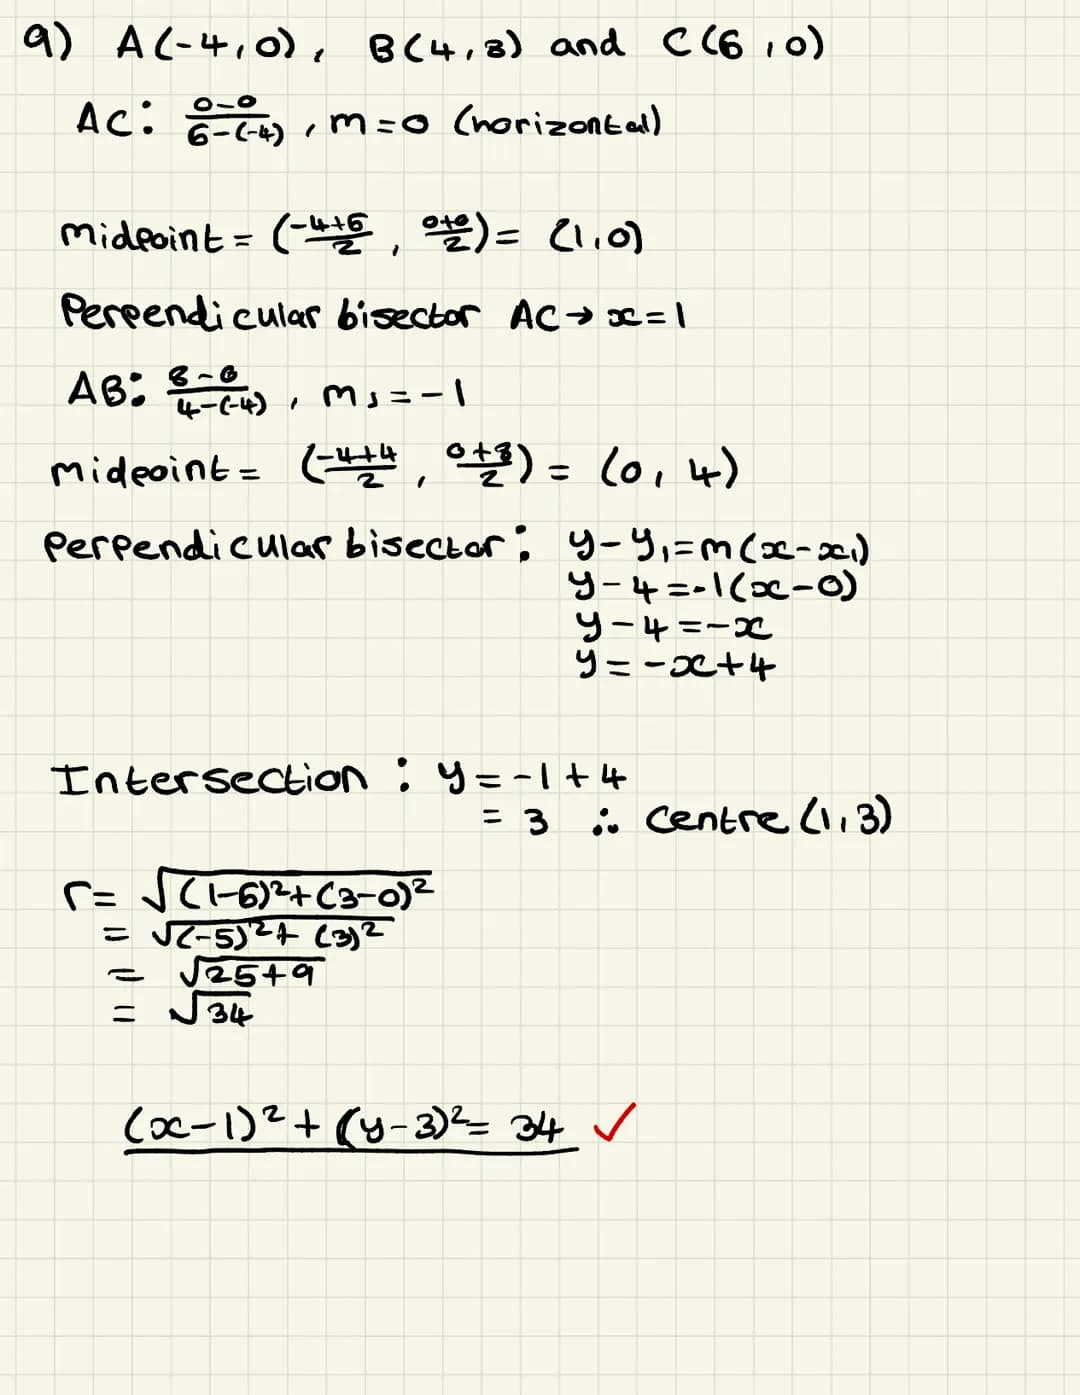 9) A(-4,0), B(4,8) and C(6,0)
AC: 0-0/6-(-4), m=0 (horizontal)
midpoint = (-4+6/2, 0+0/2) = (1,0)
Perpendicular bisector AC → x=1
AB: 8-0/4-(-4), m⊥=-1
midpoint = (-4+4/2, 0+8/2) = (0, 4)
Perpendicular bisector: y-y₁=m(x-x₁)
y-4=-1(x-0)
y-4=-x
y=-x+4
Intersection: y=-1+4
= 3 ∴ centre (1,3)
r= √(1-6)²+(3-0)²
= √(-5)²+(3)²
= √25+9
= √34
(x-1)²+(y-3)²= 34 ✓